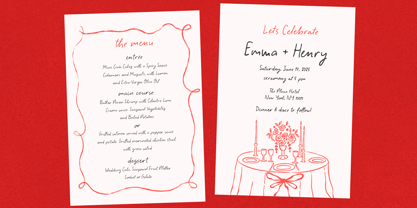 the menu
entree
Main Crab Cakes with a Spicy Sauce
Calamari and Mozzarella with Lemon
and Extra Virgin Olive Oil
main course
Butter Poison Shrimp with Celantro Lime
Creme sauce, Seasonal Vegetables
and Baked Potatoes
or
Grilled salmon served with a pepper sauce
and potato Grilled marinated chicken thigh
with green salad
dessert
Wedding Cake Seasonal Fruit Platter
Sorbet or Gelato
Lets Celebrate
Emma + Henry
Saturday, June 14, 2025
ceremony at 5 pm
The Plaza Hotel
New York, NY 10019
Dinner & disco to follow!